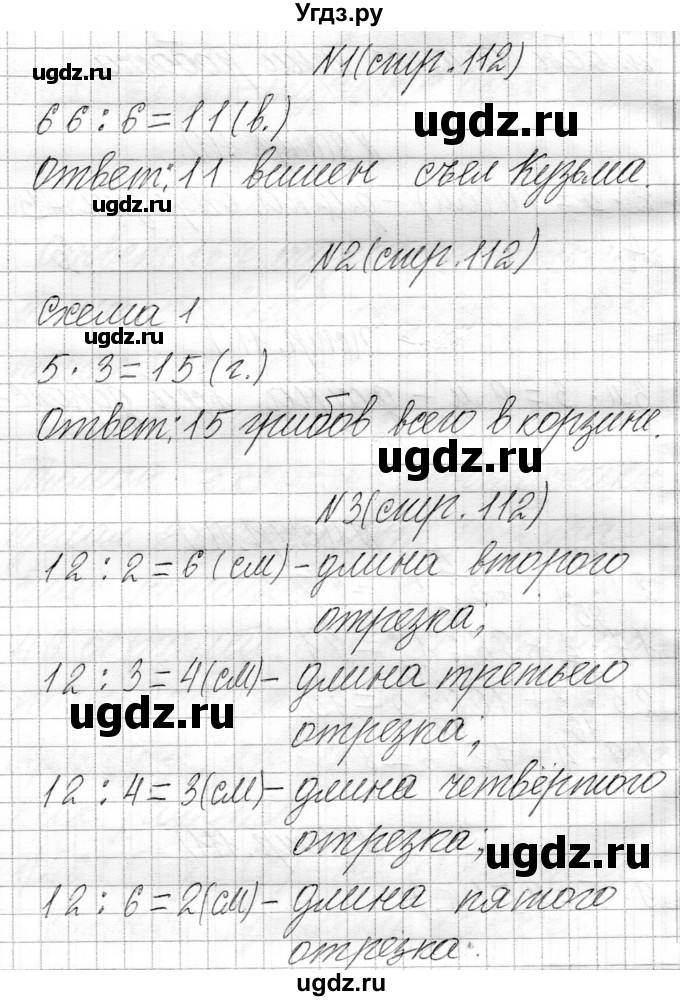 Угдз.ру
ugdz.ru
№1(стр.112)
66:6=11(в.)
ugdz.ru
Ответ: 11 вишен съел Кузьма.
ugdz.ru
№2(стр.112)
Схема 1
ugdz.ru
5·3=15(г.)
Ответ: 15 грибов всего в корзине.
ugdz.ru
№3(стр.112)
12:2=6(см)-длина второго
отрезка;
12:3=4(см)-длина третьего
ugdz.ru
отрезка;
12:4=3(см)-длина четвёртого
отрезка;
ugdz.ru
12:6=2(см)-длина пятого
отрезка.
ugdz.ru